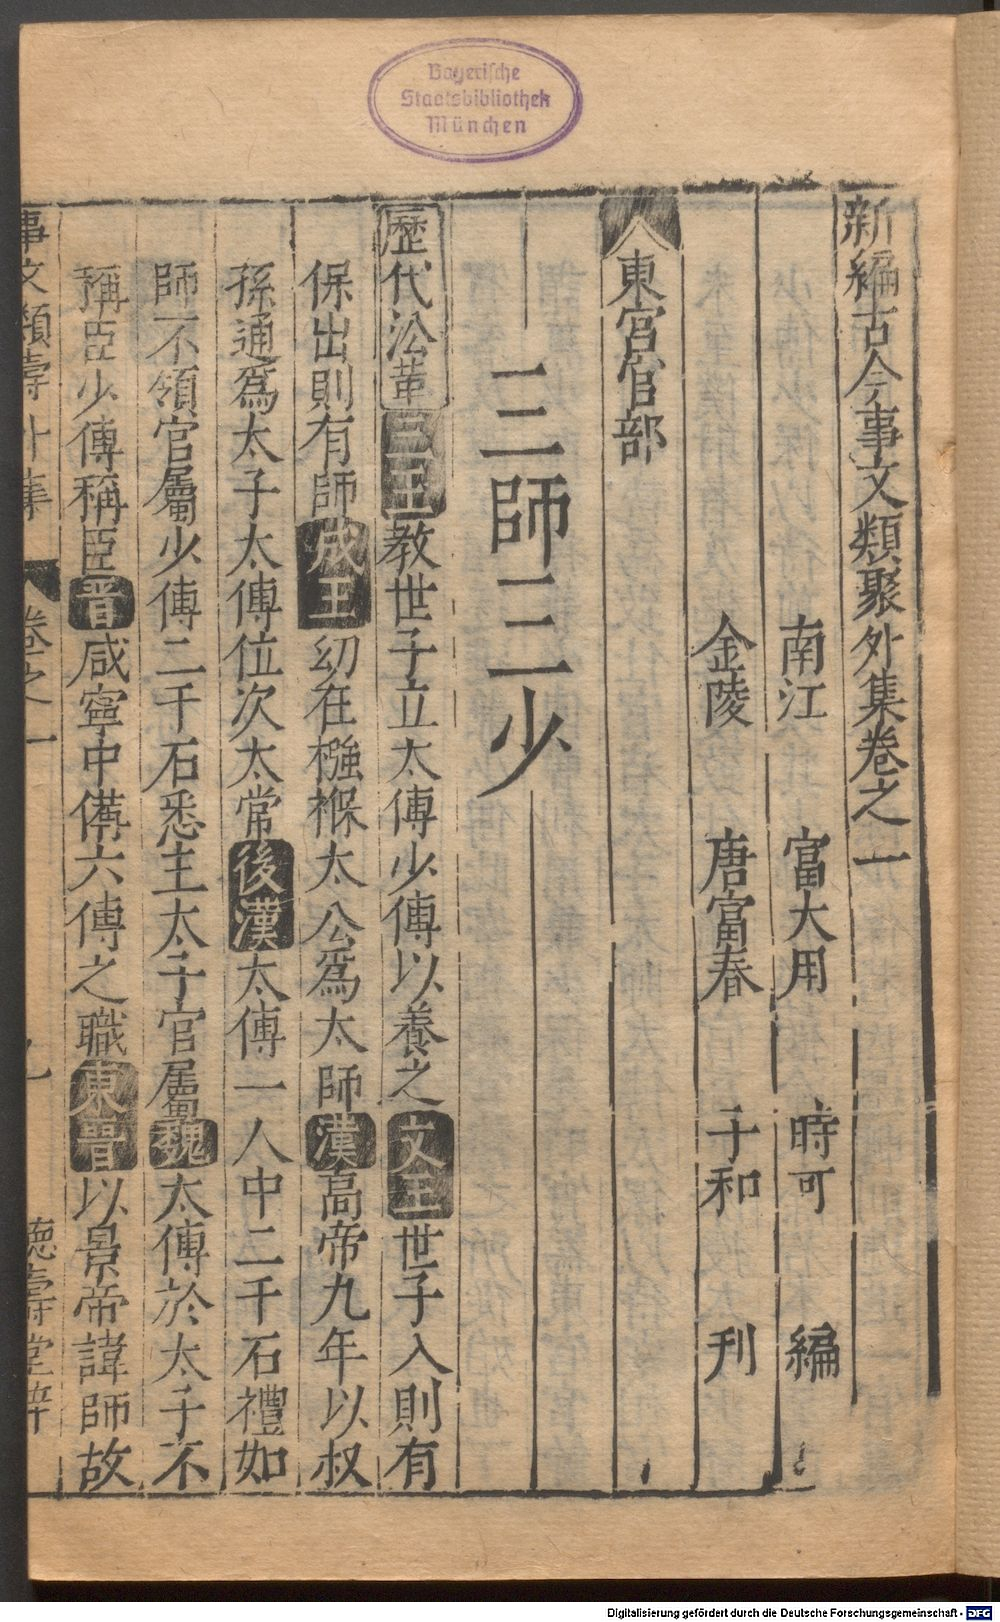 Bayerische
Staatsbibliothek
München
新編古今事文類聚外集卷之一
南江 富大用 時可 編
金陵 唐富春 子和 刋
東宮官部
三師三少
歷代㳂革三王教世子立太傅少傅以養之文王世子入則有
保出則有師成王幼在襁褓太公爲太師漢高帝九年以叔
孫通爲太子太傅位次太常後漢太傅一人中二千石禮如
師不領官屬少傅二千石悉主太子官屬魏太傅於太子不
稱臣少傅稱臣晉咸寧中備六傅之職東晉以景帝諱師故
事文類壽外集 卷之一 德壽堂梓
Digitalisierung gefördert durch die Deutsche Forschungsgemeinschaft - DFG